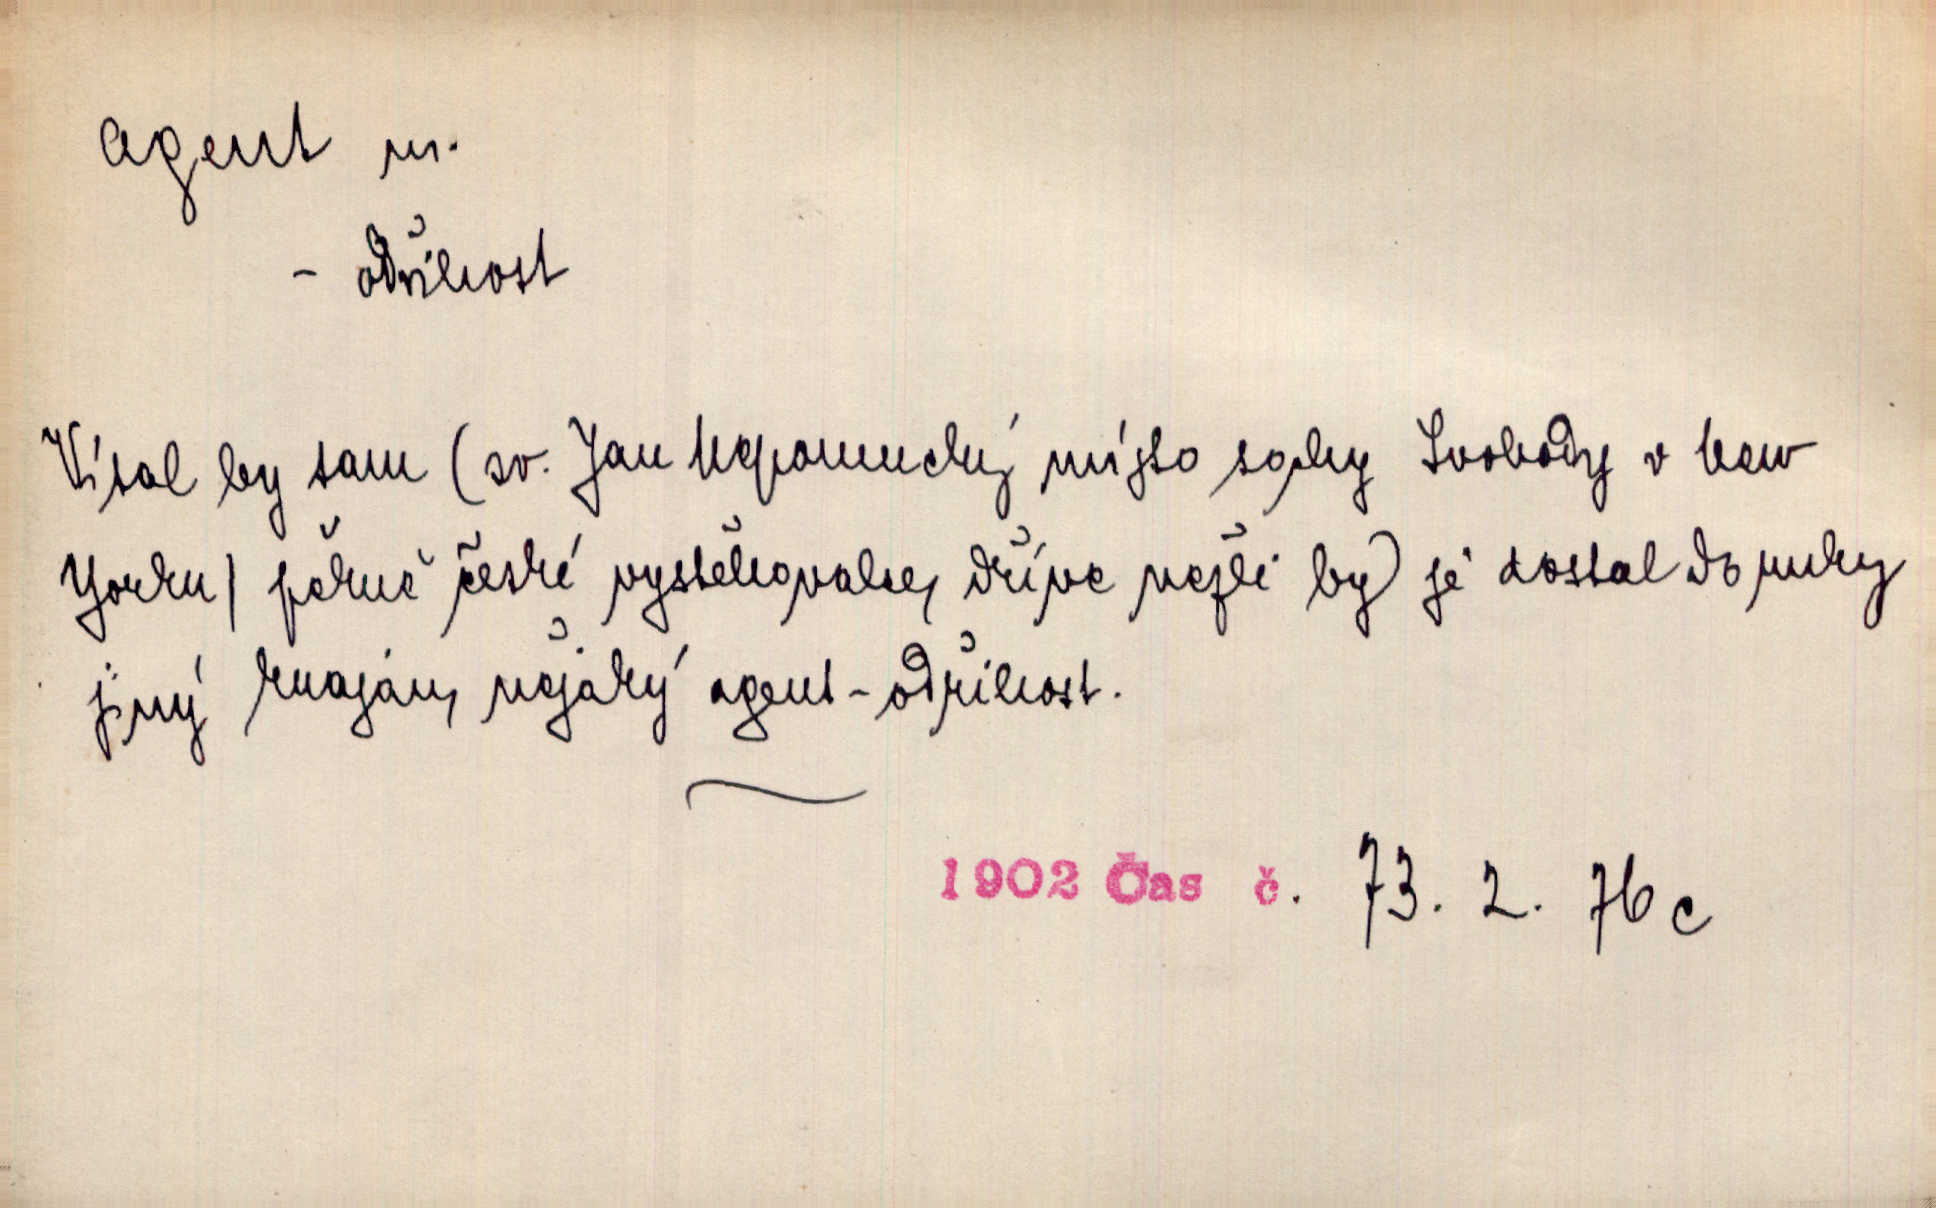 agent m.
- odřihost
Vítal by tam (sv. Jan Nepomucký místo sochy Svobody v New
Yorku) pěkně české vystěhovalce, dříve nežli by je dostal do ruky
jiný kujón, nějaký agent-odřihost.
1902 Čas č. 73. 2. 76 c